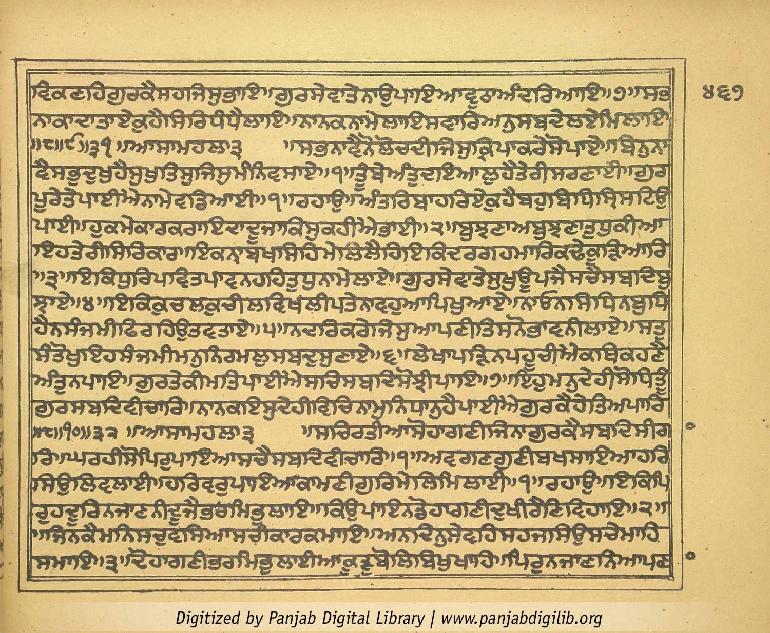 ਵਿਕਣਹਿਗੁਰਕੈਸਹਜਿਸੁਭਾਇ॥ਗੁਰਸੇਵਾਤੇਨਾਉਪਾਇਆਵੁਠਾਅੰਦਰਿਆਇ॥੭॥ਸਭ
ਨਾਕਾਦਾਤਾਏਕੁਹੈਸਿਰਿਧੰਧੈਲਾਇ॥ਨਾਨਕਨਾਮੇਲਾਇਸਵਾਰਿਅਨੁਸਬਦੇਲਏਮਿਲਾਇ
॥੮॥੯॥੩੧॥ਆਸਾਮਹਲਾ੩ ॥ਸਭਨਾਵੈਨੋਲੋਚਦੀਜਿਸੁਕ੍ਰਿਪਾਕਰੇਸੋਪਾਏ॥ਬਿਨੁਨਾ
ਵੈਸਭੁਦੁਖੁਹੈਸੁਖੁਤਿਸੁਜਿਸੁਮੰਨਿਵਸਾਏ॥੧॥ਤੂੰਬੇਅੰਤੁਦਇਆਲੁਹੈਤੇਰੀਸਰਣਾਈ॥ਗੁਰ
ਪੂਰੇਤੇਪਾਈਐਨਾਮੇਵਡਿਆਈ॥੧॥ਰਹਾਉ॥ਅੰਤਰਿਬਾਹਰਿਏਕੁਹੈਬਹੁਬਿਧਿਸ੍ਰਿਸਟਿਉ
ਪਾਈ॥ਹੁਕਮੇਕਾਰਕਰਾਇਦਾਦੂਜਾਕਿਸੁਕਹੀਐਭਾਈ॥੨॥ਬੁਝਣਾਅਬੁਝਣਾਤੁਧੁਕੀਆ
ਇਹਤੇਰੀਸਿਰਿਕਾਰ॥ਇਕਨਾਬਖਸਿਹਿਮੇਲਿਲੈਹਿਇਕਿਦਰਗਹਮਾਰਿਕਢੇਕੂੜਿਆਰਿ
॥੩॥ਇਕਿਧੁਰਿਪਵਿਤਪਾਵਨਹਹਿਤੁਧੁਨਾਮੇਲਾਏ॥ਗੁਰਸੇਵਾਤੇਸੁਖੁਊਪਜੈਸਚੈਸਬਦਿਬੁ
ਝਾਏ॥੪॥ਇਕਿਕੁਚਲਕੁਚੀਲਵਿਖਲੀਪਤੇਨਾਵਹੁਆਪਿਖੁਆਏ॥ਨਾਓਨਸਿਧਿਨਬੁਧਿ
ਹੈਨਸੰਜਮੀਫਿਰਹਿਉਤਵਤਾਏ॥੫॥ਨਦਰਿਕਰੇਜਿਸੁਆਪਣੀਤਿਸਨੋਭਾਵਨੀਲਾਏ॥ਸਤੁ
ਸੰਤੋਖੁਇਹਸੰਜਮੀਮਨੁਨਿਰਮਲੁਸਬਦੁਸੁਣਾਏ॥੬॥ਲੇਖਾਪੜਿਨਪਹੂਚੀਐਕਥਿਕਹਣੈ
ਅੰਤੁਨਪਾਇ॥ਗੁਰਤੇਕੀਮਤਿਪਾਈਐਸਚਿਸਬਦਿਸੋਝੀਪਾਇ॥੭॥ਇਹੁਮਨੁਦੇਹੀਸੋਧਿਤੂੰ
ਗੁਰਸਬਦਿਵੀਚਾਰਿ॥ਨਾਨਕਇਸੁਦੇਹੀਵਿਚਿਨਾਮੁਨਿਧਾਨੁਹੈਪਾਈਐਗੁਰਕੈਹੇਤਿਅਪਾਰਿ
॥੮॥੧੦॥੩੨॥ਆਸਾਮਹਲਾ੩ ॥ਸਚਿਰਤੀਆਸੋਹਾਗਣੀਜਿਨਾਗੁਰਕੈਸਬਦਿਸੀਗਾ
ਰਿ॥ਘਰਹੀਸੋਪਿਰੁਪਾਇਆਸਚੈਸਬਦਿਵੀਚਾਰਿ॥੧॥ਅਵਗਣਗੁਣੀਬਖਸਾਇਆਹਰਿ
ਸਿਉਲਿਵਲਾਈ॥ਹਰਿਵਰੁਪਾਇਆਕਾਮਣੀਗੁਰਿਮੇਲਿਮਿਲਾਈ॥੧॥ਰਹਾਉ॥ਇਕਿਪਿ
ਰੁਹਦੂਰਿਨਜਾਣਨੀਦੂਜੈਭਰਮਿਭੁਲਾਇ॥ਕਿਉਪਾਇਨਡੋਹਾਗਣੀਦੁਖੀਰੈਣਿਵਿਹਾਇ॥੨॥
॥ਜਿਨਕੈਮਨਿਸਚੁਵਸਿਆਸਚੀਕਾਰਕਮਾਇ॥ਅਨਦਿਨੁਸੇਵਹਿਸਹਜਸਿਉਸਚੇਮਾਹਿ
ਸਮਾਇ॥੩॥ਦੋਹਾਗਣੀਭਰਮਿਭੁਲਾਈਆਕੂੜੁਬੋਲਿਬਿਖੁਖਾਹਿ॥ਪਿਰੁਨਜਾਣਨਿਆਪਣ
੪੬੧
Digitized by Panjab Digital Library | www.panjabdigilib.org